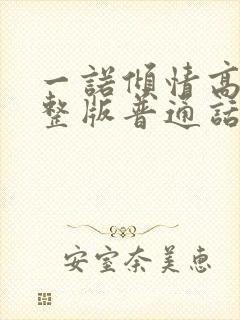 一諾傾情高
整版普通話
安室奈美惠